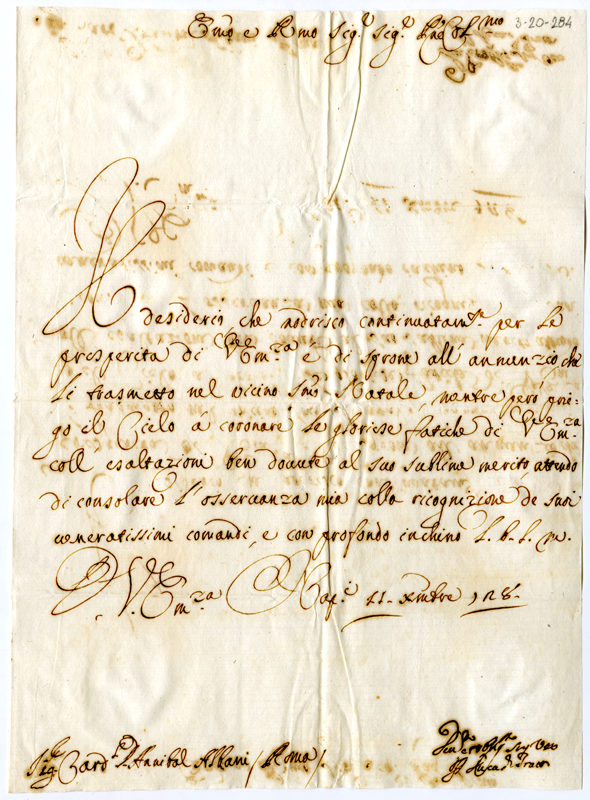 3-20-284
Emo e Rmo Sig.r Sig.r Pne Col.mo
Il desiderio che nodrisco continuatam.te per le
prosperità di V. Em.za è di sprone all' annunzio, che
Li trasmetto nel vicino Smo Natale, mentre però prie-
go il Cielo à coronare le gloriose fatiche di V. Em.za
coll' esaltazioni ben dovute al suo sublime merito, attendo
di consolare l' osservanza mia colla ricognizione de suoi
veneratissimi comandi, e con profondo inchino L. b. l. m.
D V. Em.za Nap.i 11. xmbre 1718.
Sig.r Card.le Annibal Albani / Roma /